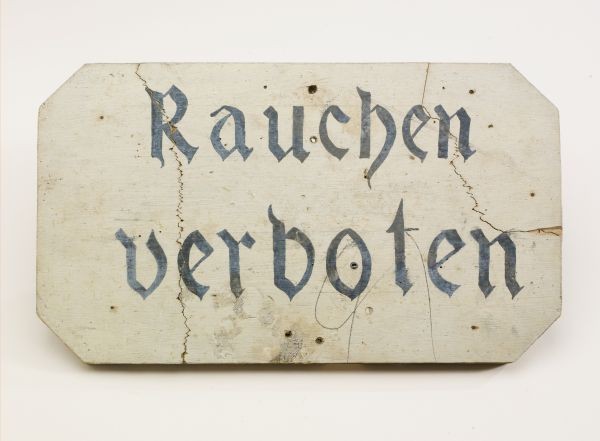 Rauchen
verboten